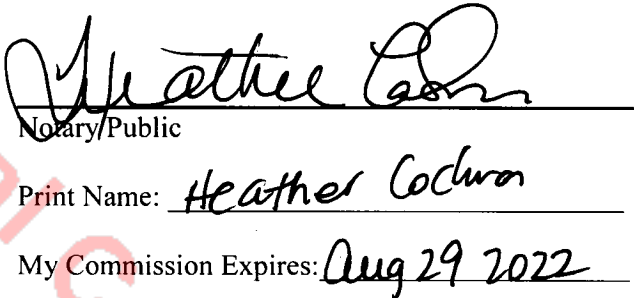 Heather
Notary Public
Print Name: Heather Cochran
My Commission Expires: Aug 29 2022